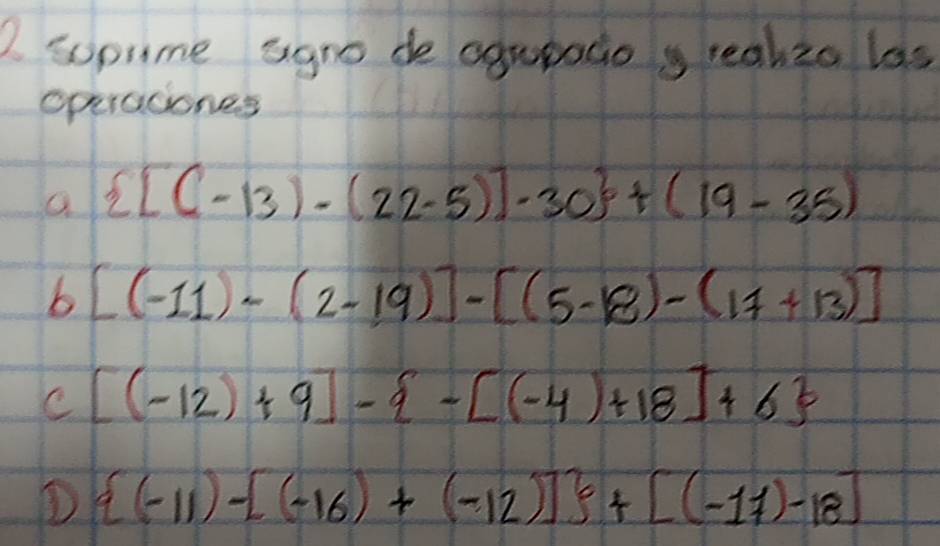 2 soprime signo de agrupacio y realizo las
operaciones
a {[(-13)-(22-5)]-30}+(19-35)
b [(-11)-(2-19)]-[(5-18)-(17+13)]
c [(-12)+9]-{-[(-4)+18]+6}
D {(-11)-[(-16)+(-12)]}+[(-17)-18]